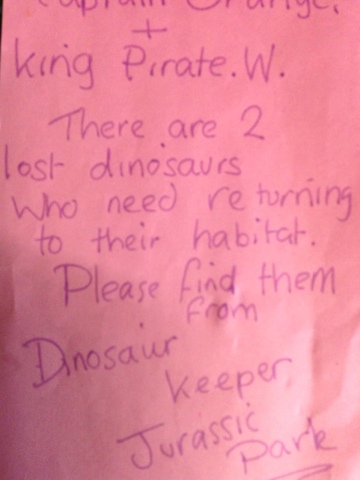 Captain Orange.
+
king Pirate.W.
There are 2
lost dinosaurs
who need returning
to their habitat.
Please find them
from
Dinosaur
keeper
Jurassic
Park